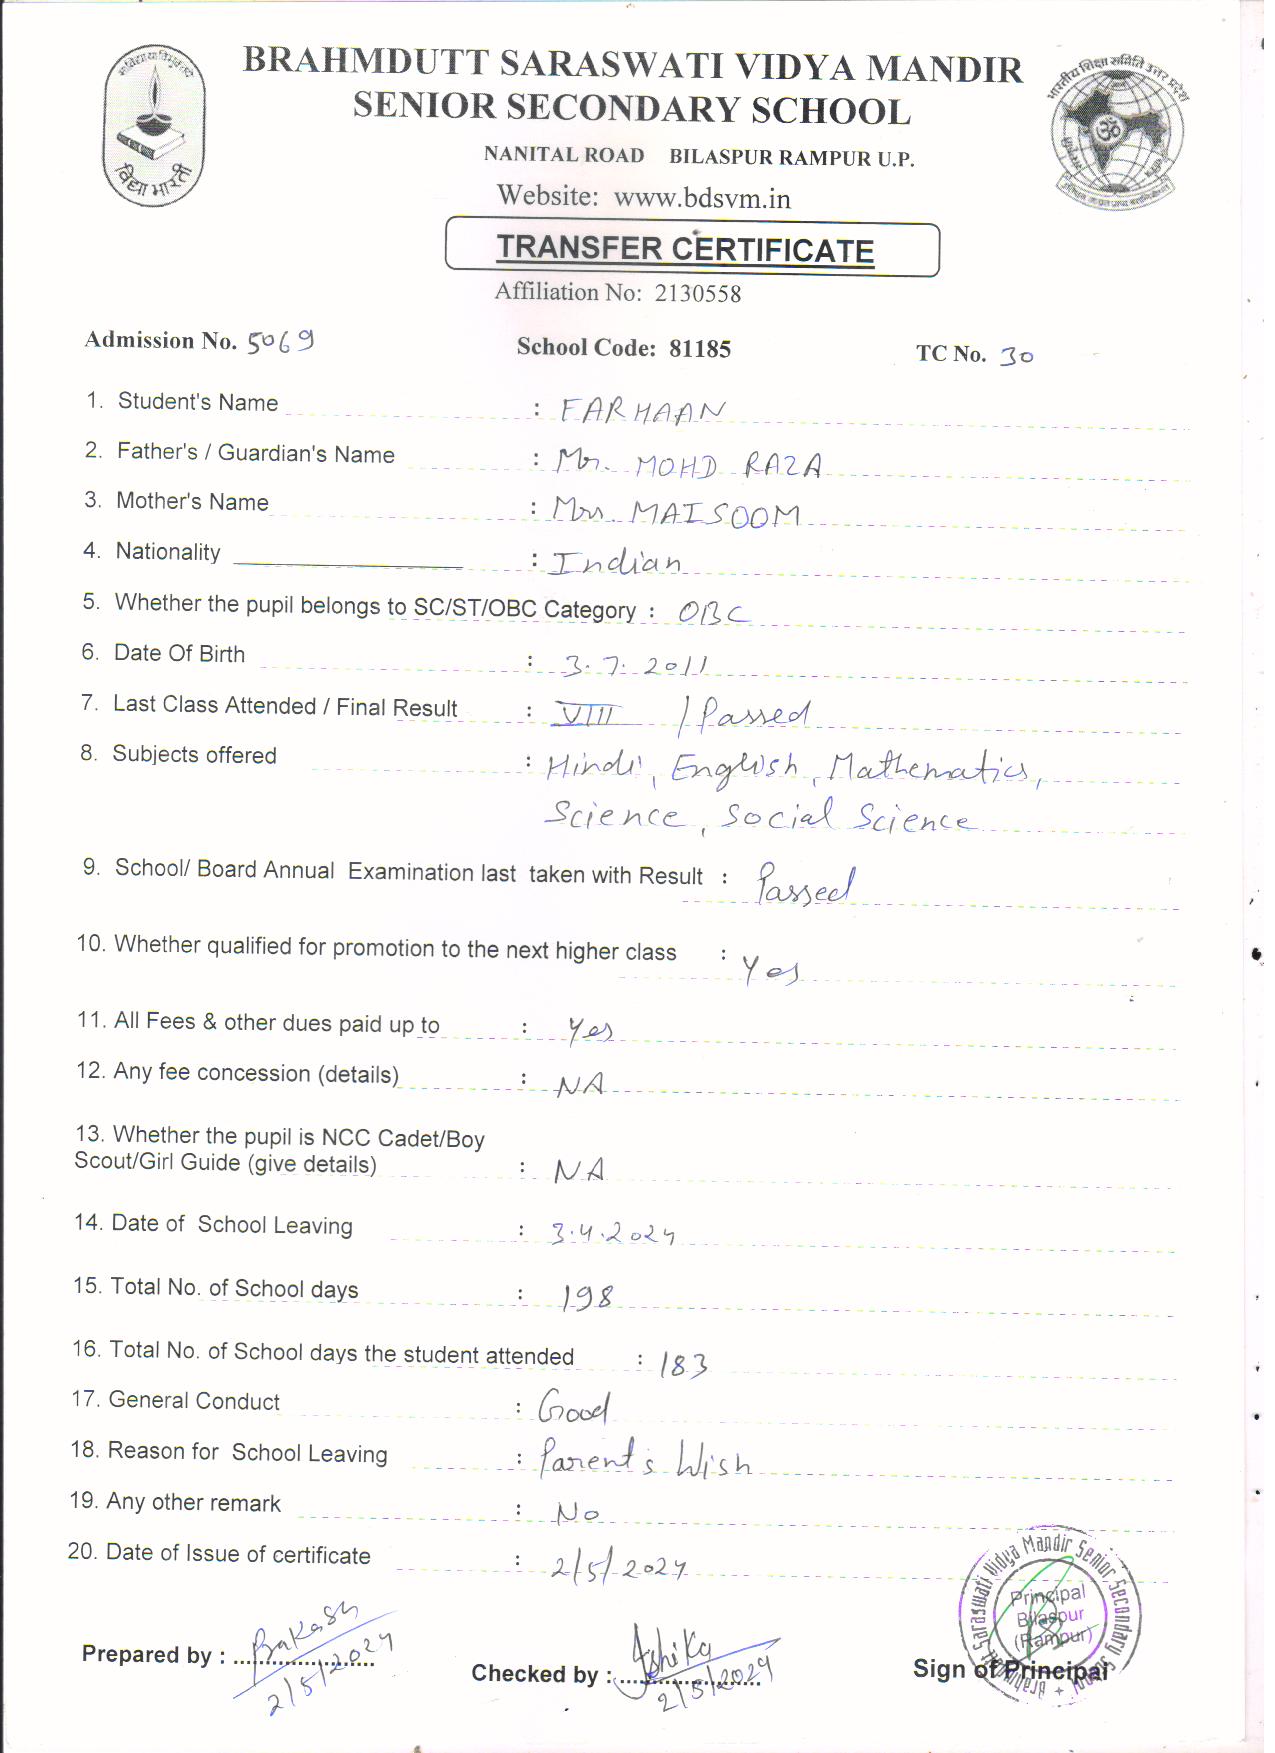 BRAHMDUTT SARASWATI VIDYA MANDIR
SENIOR SECONDARY SCHOOL
NANITAL ROAD BILASPUR RAMPUR U.P.
Website: www.bdsvm.in
विद्या भारती
भारतीय शिक्षा समिति उत्तर प्रदेश
TRANSFER CERTIFICATE
Affiliation No: 2130558
Admission No. 5069 School Code: 81185 TC No. 30
1. Student's Name : FARHAAN
2. Father's / Guardian's Name : Mr. MOHD RAZA
3. Mother's Name : Mrs. MAISOOM
4. Nationality : Indian
5. Whether the pupil belongs to SC/ST/OBC Category : OBC
6. Date Of Birth : 3.7.2011
7. Last Class Attended / Final Result : VIII / Passed
8. Subjects offered : Hindi, English, Mathematics,
Science, Social Science
9. School/ Board Annual Examination last taken with Result : Passed
10. Whether qualified for promotion to the next higher class : Yes
11. All Fees & other dues paid up to : Yes
12. Any fee concession (details) : NA
13. Whether the pupil is NCC Cadet/Boy
Scout/Girl Guide (give details) : NA
14. Date of School Leaving : 3.4.2024
15. Total No. of School days : 198
16. Total No. of School days the student attended : 183
17. General Conduct : Good
18. Reason for School Leaving : Parent's Wish
19. Any other remark : No
20. Date of Issue of certificate : 2/5/2024
Prepared by : ..................... 2/5/2024
Checked by : ..................... 2/5/2024
Sign of Principal
Brahmdutt Saraswati Vidya Mandir Senior Secondary School
Principal
Bilaspur
(Rampur)